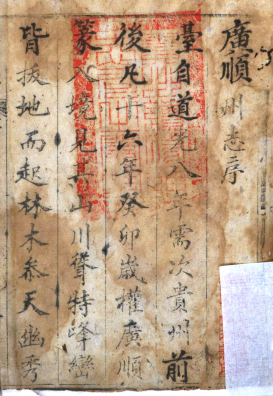 廣順州志序
臺自道光八年需次貴州前
後凡十六年癸卯歲權廣順
篆入境見其山川聳特峰巒
皆拔地而起林木叅天幽秀